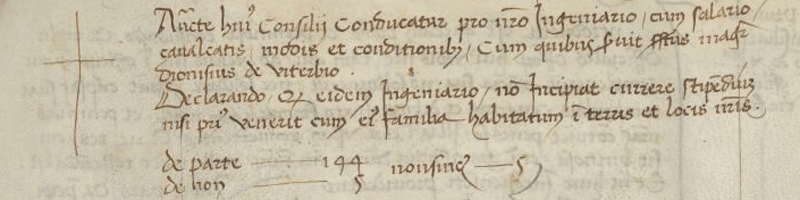 Aucte huiꝰ Consilii Conducatur pro nr̃o Ingeniario, cum salario,
caualcatis, modis et conditionibꝫ, Cum quibus s̃uit mag̃r
dionisius de viterbio.
Declarando, qꝫ eidem Ingeniario, nō Incipiat currere stipēdiuꝫ
nisi priꝰ venerit cum eiꝰ familia habitatum ī terris et locis nr̃is.
de parte 144 nonsincẽ 5
de non 5